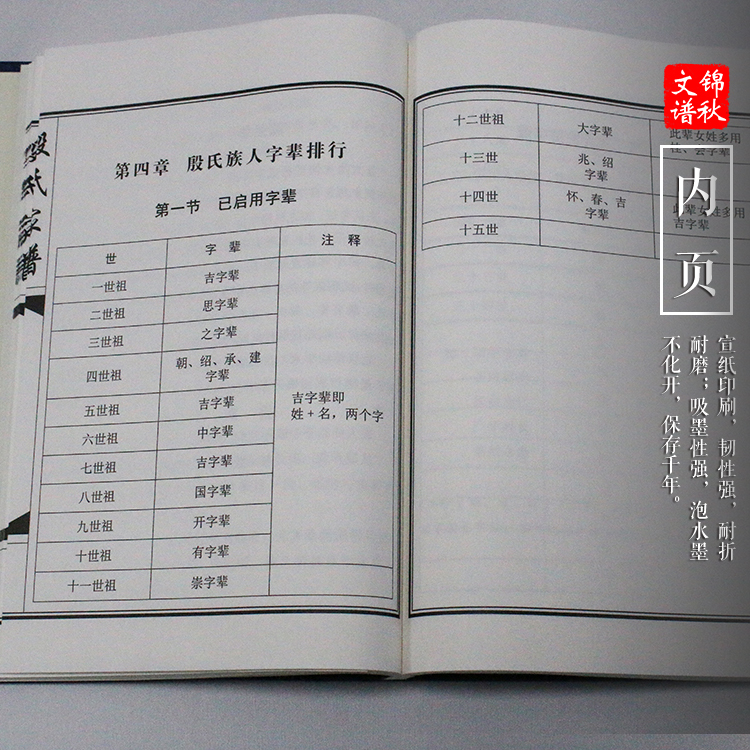 殷氏家谱
第四章 殷氏族人字辈排行
第一节 已启用字辈
世 字 辈 注 释
一世祖 吉字辈
二世祖 思字辈
三世祖 之字辈
四世祖 朝、绍、承、建
字辈
五世祖 吉字辈
六世祖 中字辈
七世祖 吉字辈
八世祖 国字辈
九世祖 开字辈
十世祖 有字辈
十一世祖 崇字辈
吉字辈即
姓+名，两个字
十二世祖 大字辈
此辈女姓多用
芸字辈
十三世 兆、绍
字辈
十四世 怀、春、吉
字辈
此辈女姓多用
吉字辈
十五世
锦秋
文谱
内页
宣纸印刷，韧性强，耐折
耐磨；吸墨性强，泡水墨
不化开，保存千年。